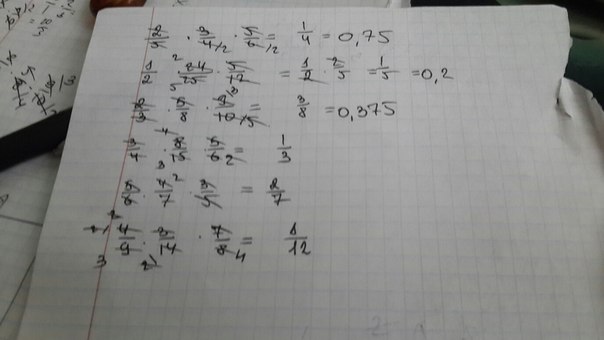 2/5 · 3/4 · 5/6 = 1/4 = 0,75
1/2 · 24/25 · 5/12 = 1/2 · 2/5 = 1/5 = 0,2
2/3 · 5/8 · 9/10 = 3/8 = 0,375
3/4 · 8/15 · 5/6 = 1/3
5/6 · 4/7 · 3/5 = 2/7
4/9 · 3/14 · 7/8 = 1/12